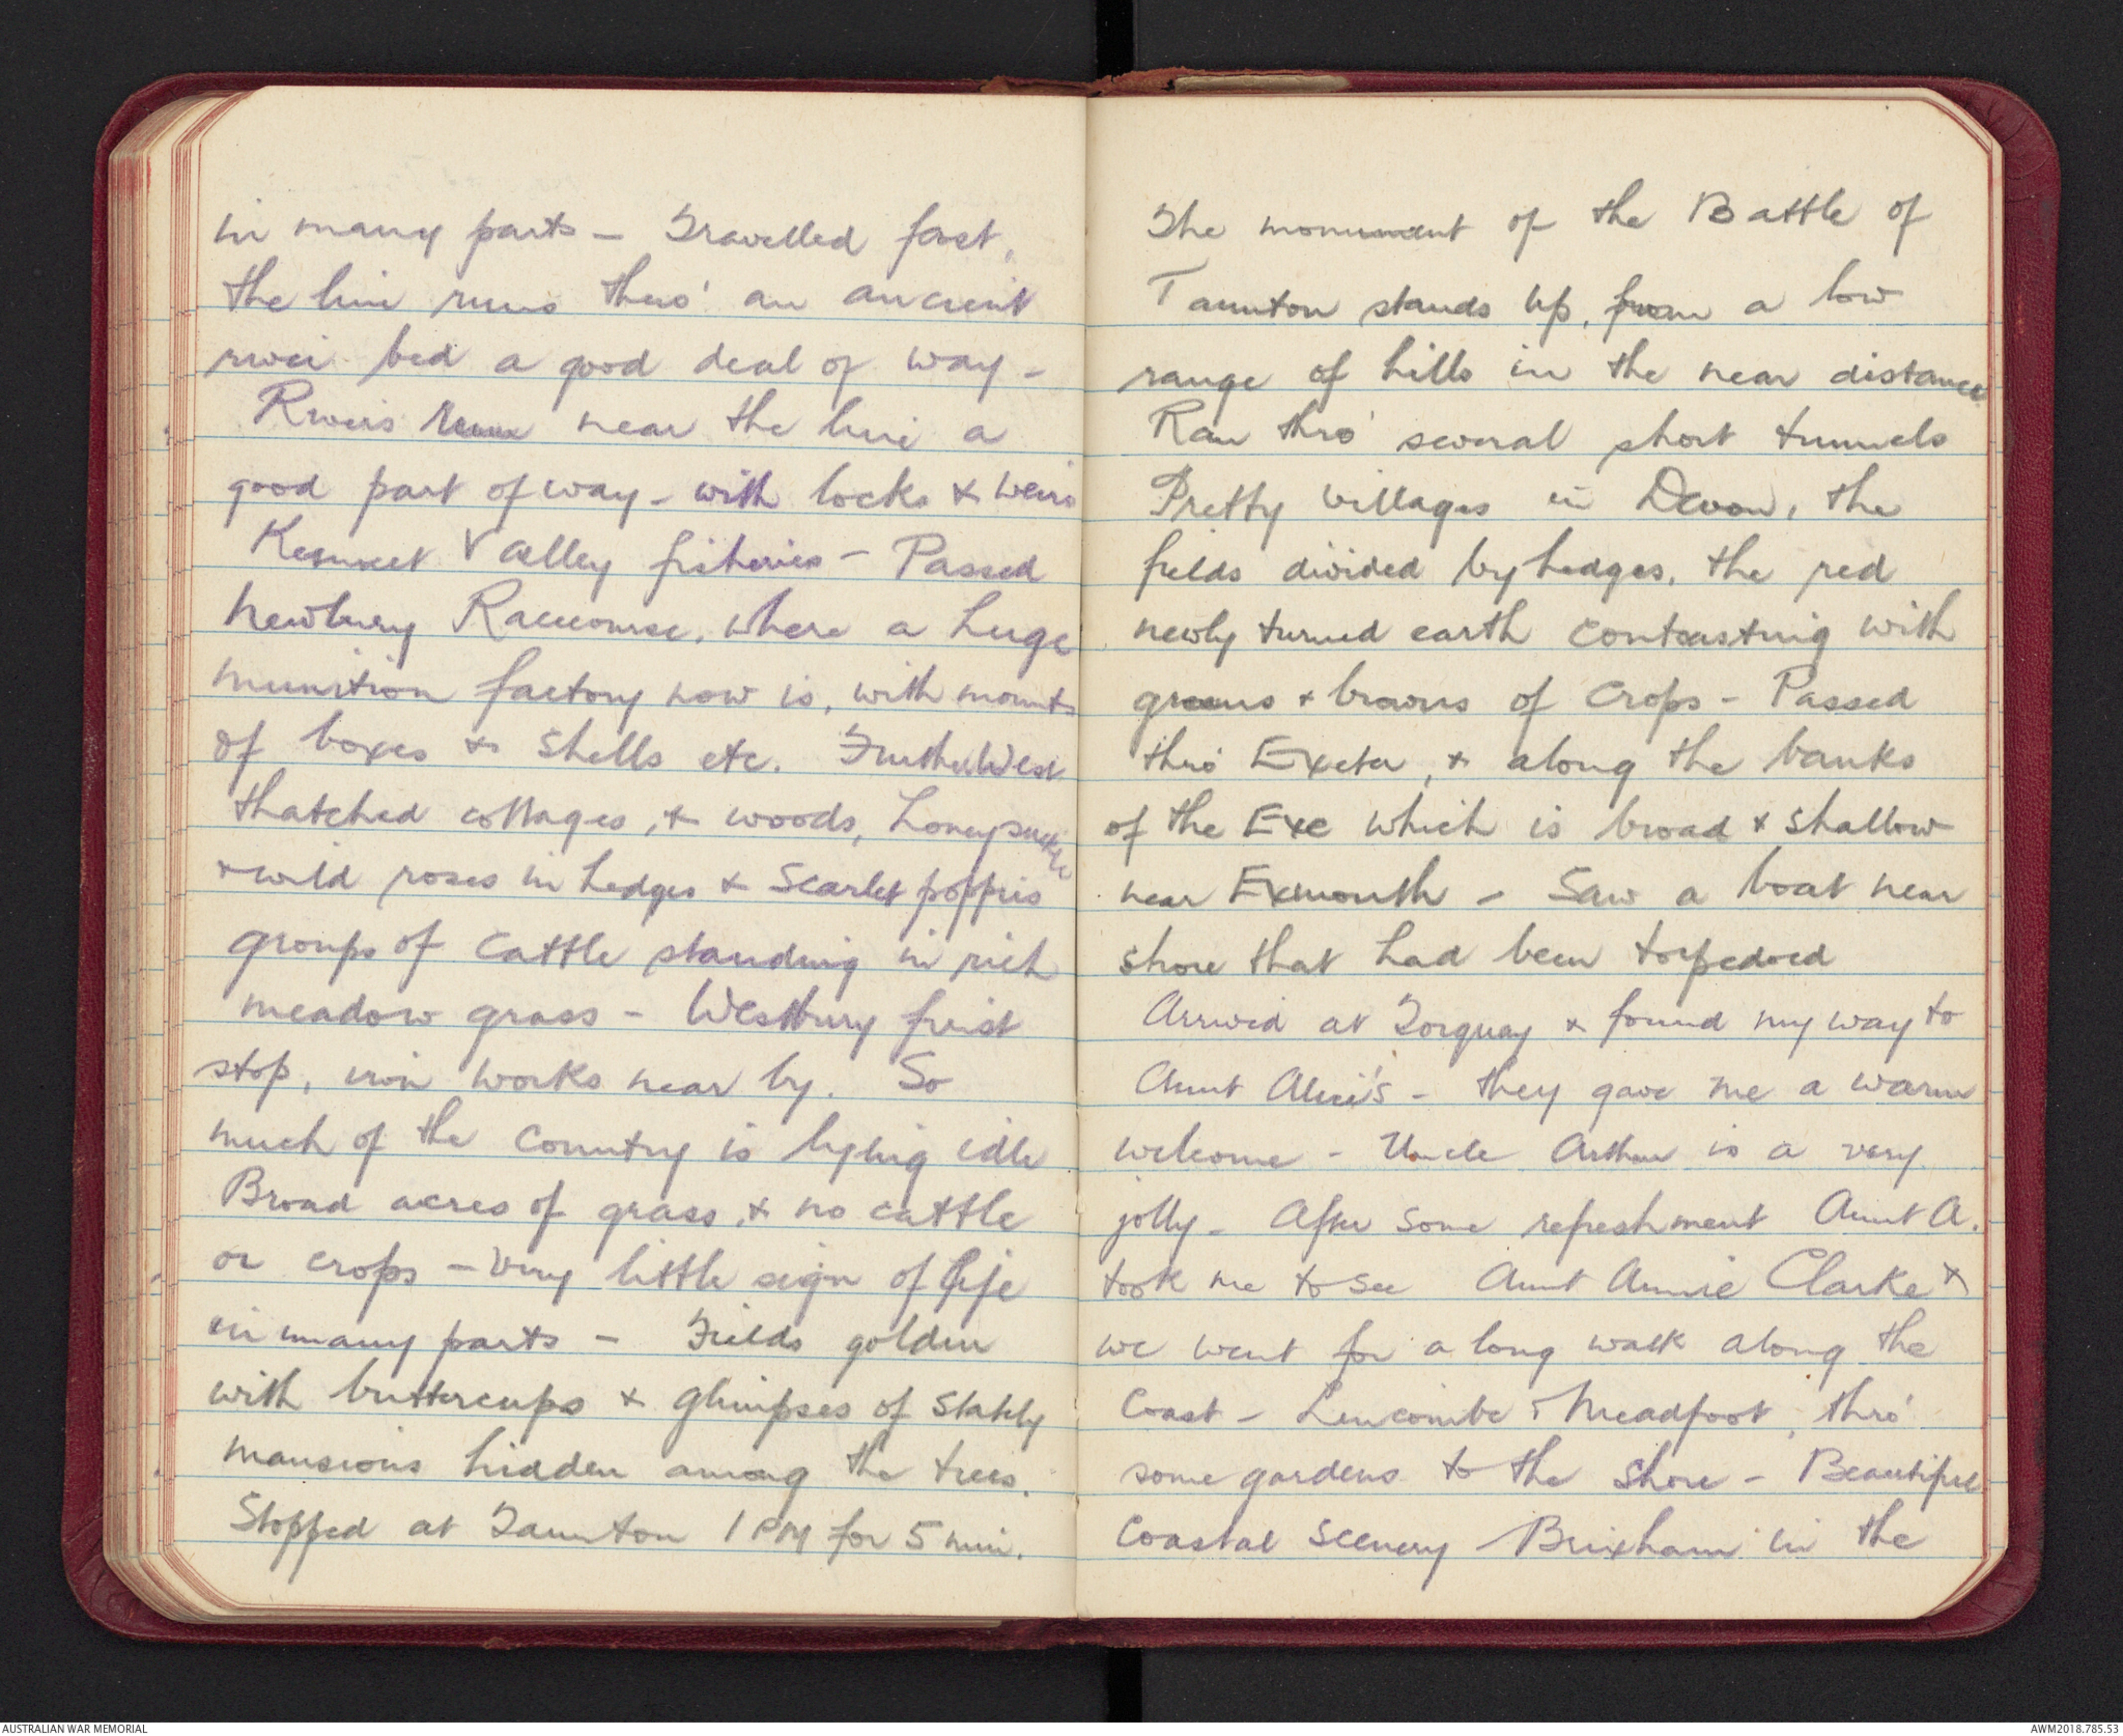 in many parts - Travelled fast,
the line runs thro' an ancient
river bed a good deal of way -
Rivers near the line a
good part of way - with locks & weirs
Kennet Valley fisheries - Passed
Newbury Racecourse, where a huge
munition factory now is, with mounts
of boxes & shells etc. Further West
thatched cottages, & woods, honeysuckle
& wild roses in hedges & scarlet poppies
groups of cattle standing in rich
meadow grass - Westbury first
stop, iron works near by. So
much of the country is lying idle
Broad acres of grass, & no cattle
or crops - very little sign of life
in many parts - Fields golden
with buttercups & glimpses of stately
mansions hidden among the trees.
Stopped at Taunton 1 PM for 5 min.
The monument of the Battle of
Taunton stands up, from a low
range of hills in the near distance
Ran thro' several short tunnels
Pretty villages in Devon, the
fields divided by hedges, the red
newly turned earth contrasting with
greens & browns of crops - Passed
thro' Exeter, & along the banks
of the Exe which is broad & shallow
near Exmouth - Saw a boat near
shore that had been torpedoed
Arrived at Torquay & found my way to
Aunt Alice's - they gave me a warm
welcome - Uncle Arthur is a very
jolly - After some refreshment Aunt A.
took me to see Aunt Annie Clarke &
we went for a long walk along the
Coast - Lincombe & Meadfoot, thro'
some gardens to the shore - Beautiful
Coastal scenery Brixham in the
AUSTRALIAN WAR MEMORIAL
AWM2018.785.53